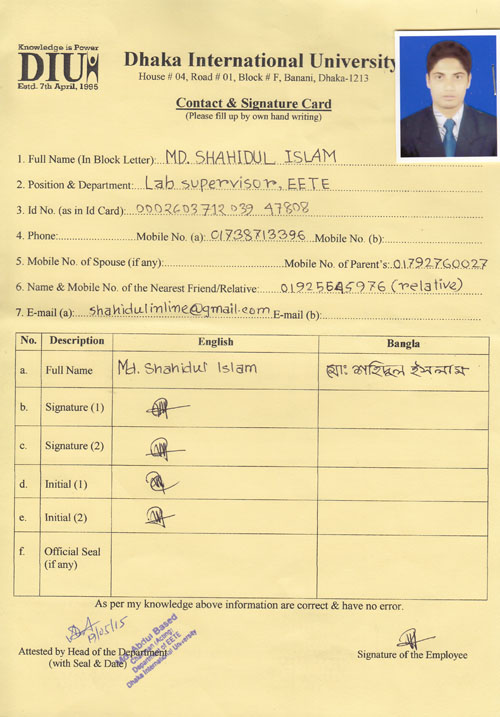 Knowledge is Power
DIU
Estd. 7th April, 1995
Dhaka International University
House # 04, Road # 01, Block # F, Banani, Dhaka-1213
Contact & Signature Card
(Please fill up by own hand writing)
1. Full Name (In Block Letter): MD. SHAHIDUL ISLAM
2. Position & Department: Lab supervisor, EETE
3. Id No. (as in Id Card): 0002603712039 47808
4. Phone: Mobile No. (a): 01738713396 Mobile No. (b):
5. Mobile No. of Spouse (if any): Mobile No. of Parent's: 01792760027
6. Name & Mobile No. of the Nearest Friend/Relative: 01925545976 (relative)
7. E-mail (a): shahidulinline@gmail.com E-mail (b):
No. Description English Bangla
a. Full Name Md. Shahidul Islam মোঃ শহিদুল ইসলাম
b. Signature (1)
c. Signature (2)
d. Initial (1)
e. Initial (2)
f. Official Seal
(if any)
As per my knowledge above information are correct & have no error.
Md. Abdul Based
Chairman (Acting)
Department of EETE
Dhaka International University
Attested by Head of the Department
(with Seal & Date)
Signature of the Employee